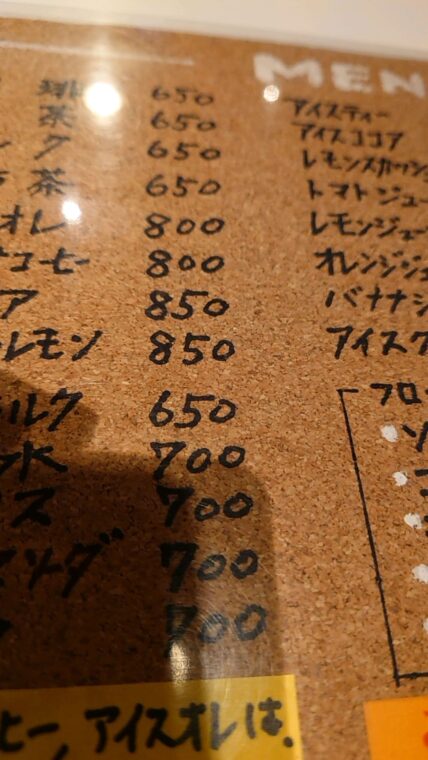 MEN
珈 650
茶 650
ク 650
茶 650
オレ 800
コーヒー 800
ア 850
レモン 850
ルク 650
700
ス 700
ソーダ 700
700
ヒー、アイスオレは、
アイスティー
アイスココア
レモンスカッシュ
トマトジュー
レモンジュー
オレンジジュ
バナナジ
アイスク
フロ
ソ